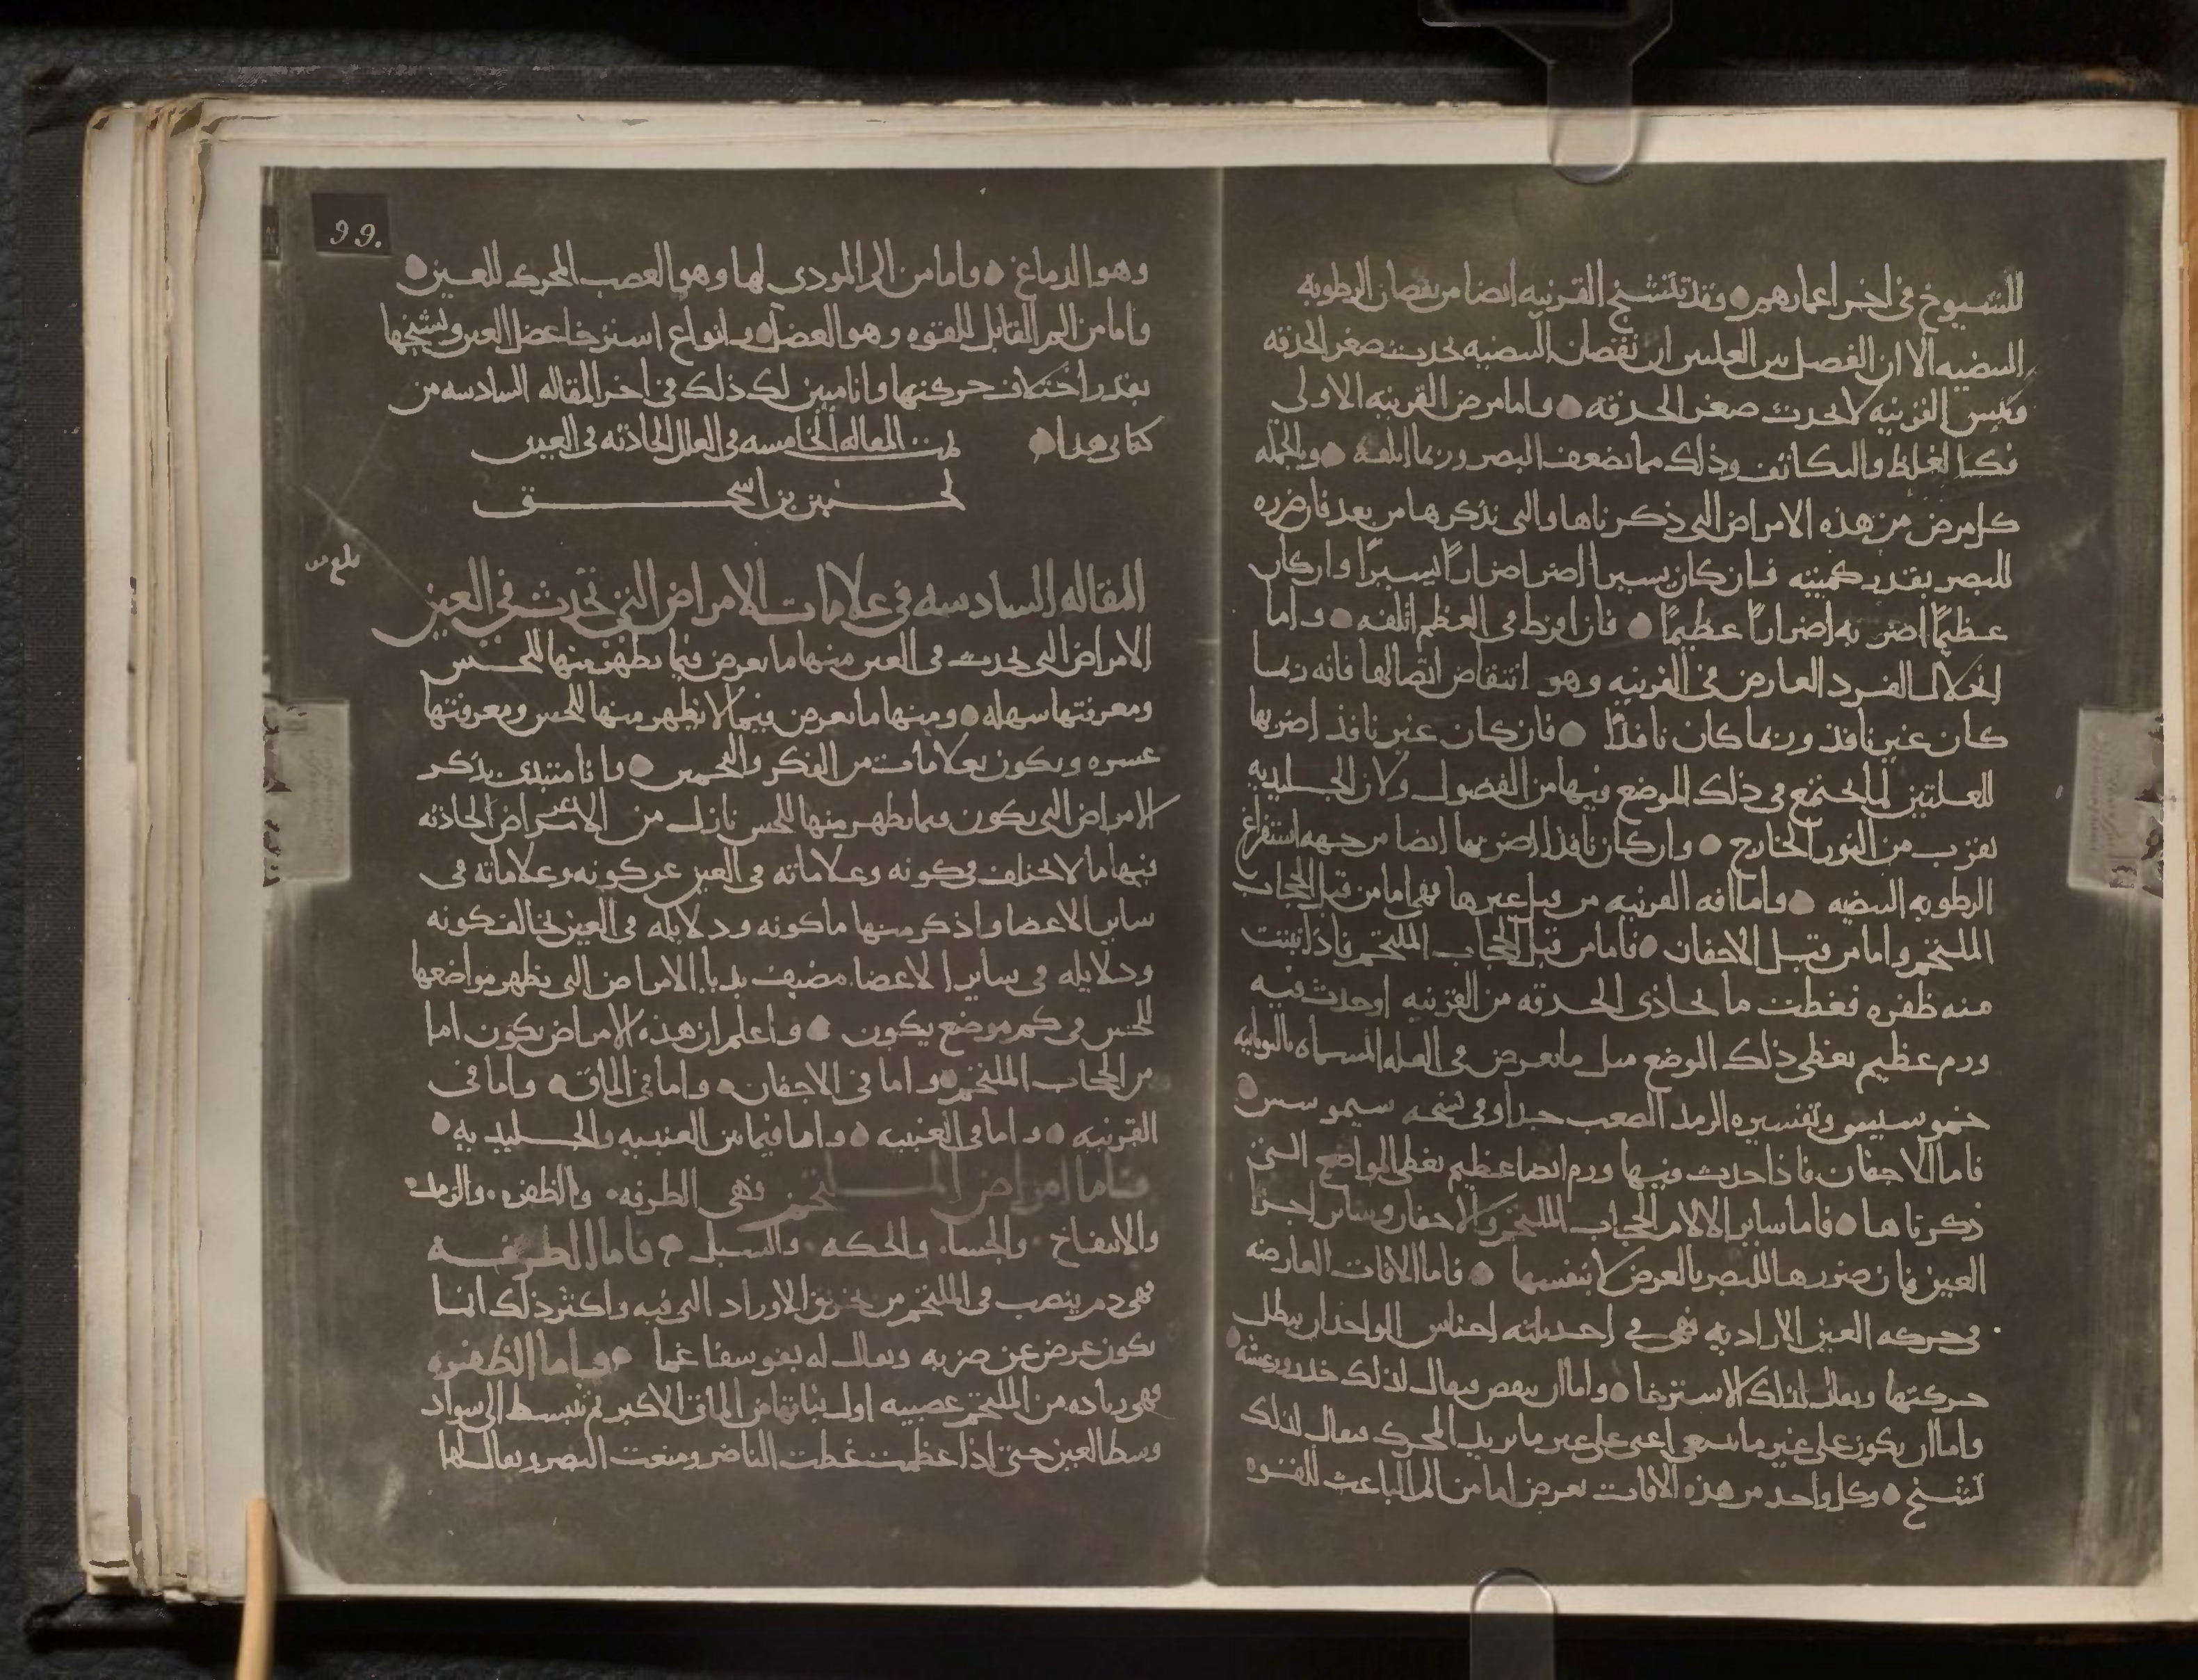 للشيوخ في اخر اعمارهم وقد تتشنج القرنيه ايضا من نقصان الرطوبه
البيضيه الا ان الفصل بين العلتين ان نقصان البيضيه يحدث صغر الحدقه
ويبس القرنيه لا يحدث صغر الحدقه واما مرض القرنيه الاولى
فكالغلظ والتكاثف وذلك مما يضعف البصر وربما اتلفه وبالجمله
كل مرض من هذه الامراض التي ذكرناها والتي نذكرها من بعد فان ضرره
للبصر بقدر كميته فان كان يسيرا اضر اضرارًا يسيرًا وان كان
عظيمًا اضر به اضرارًا عظيمًا فان افرط في العظم اتلفه واما
انحلال الفرد العارض في القرنيه وهو انتقاض اتصالها فانه ربما
كان غير نافذ وربما كان نافذًا فان كان غير نافذ اضر بها
للعلتين لما يجتمع في ذلك الموضع فيها من الفضول ولان الجليديه
تقرب من النور الخارج وان كان نافذا اضر بها ايضا من جهه استفراغ
الرطوبه البيضيه واما افه القرنيه من قبل غيرها فهي اما من قبل الحجاب
الملتحم واما من قبل الاجفان فاما من قبل الحجاب الملتحم فاذا نبتت
منه ظفره فغطت ما يحاذي الحدقه من القرنيه او حدث فيه
ورم عظيم يغطي ذلك الموضع مثل ما يعرض في العله المسماه باليونانيه
خموسيس وتفسيره الرمد الصعب جدا وفي نسخه سيموسس
فاما الاجفان فاذا حدث فيها ورم ايضا عظيم يغطي المواضع التي
ذكرناها فاما ساير الالام الحجاب الملتحم والاجفان وساير اجزا
العين فان ضررها للبصر بالعرض لا بنفسها فاما الافات العارضه
في حركه العين الاراديه فهي في احد ثلثه اجناس الواحد ان يبطل
حركتها ويقال لذلك الاسترخا واما ان ينقص فيقال لذلك خدر ورعشه
واما ان يكون على غير ما ينبغي اعني على غير ما يريد المحرك فيقال لذلك
تشنج وكل واحد من هذه الافات تعرض اما من الم الباعث للقوه
99.
وهو الدماغ واما من الم المودي لها وهو العصب المحرك للعين
واما من الم القابل للقوه وهو العضل وانواع استرخا عضل العين وتشنجها
بقدر اختلاف حركتها وانا مبين لك ذلك في اخر المقاله السادسه من
كتابي هذا تمت المقاله الخامسه في العلل الحادثه في العين
لحنين بن اسحق
بلغ
المقاله السادسه في علامات الامراض التي تحدث في العين
الامراض التي تحدث في العين منها ما يعرض فيما يظهر منها للحس
ومعرفتها سهله ومنها ما يعرض فيما لا يظهر منها للحس ومعرفتها
عسره ويكون بعلامات من الفكر والتخمين وانا مبتدئ بذكر
الامراض التي يكون فيما يظهر منها للحس تارك من الاعراض الحادثه
فيها ما لا يختلف في كونه وعلاماته في العين عن كونه وعلاماته في
ساير الاعضا واذكر منها ما كونه ودلايله في العين يخالف كونه
ودلايله في ساير الاعضا مضيف بديا الامراض التي يظهر مواضعها
للحس في كم موضع يكون واعلم ان هذه الامراض يكون اما
من الحجاب الملتحم واما في الاجفان واما في الماق واما في
القرنيه واما في العنبيه واما فيما بين العنبيه والجليديه
فاما امراض الملتحم فهي الطرفه والظفره والرمد
والانتفاخ والجسا والحكه والسبل فاما الطرفه
فهي دم ينصب في الملتحم من تخريق الاوراد التي فيه واكثر ذلك انما
يكون عرض عن ضربه ويقال له بفوسفاغما واما الظفره
فهي زياده من الملتحم عصبيه اول نباتها من الماق الاكبر ثم تنبسط الى سواد
وسط العين حتى اذا عظمت غطت الناضر ومنعت البصر ويقال لها